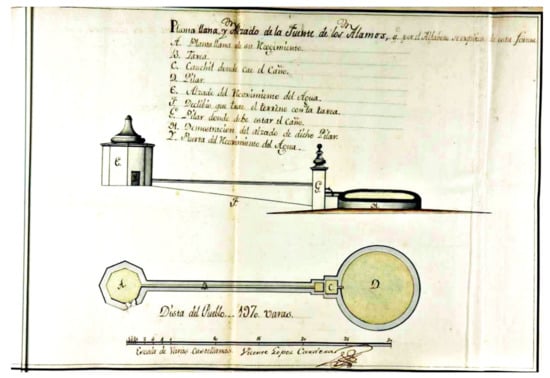 Planta llana, y Alzado de la Fuente de los Alamos, q.e por el Alfabeto se explica de esta forma
A. Planta llana de su Recivimiento.
B. Tarea.
C. Cauchil donde cae el Caño.
D. Pilar.
E. Alzado del Recivimiento del Agua.
F. Declibio que trae el terreno con la tarea.
G. Pilar donde debe estar el Caño.
H. Demostracion del alzado de dicho Pilar.
Y. Puerta del Recivimiento del Agua.
E
G
F
H
A
B
C
D
Dista del Pueblo 1970 varas.
Escala de Varas Castellanas
Vicente Lopez Cardera